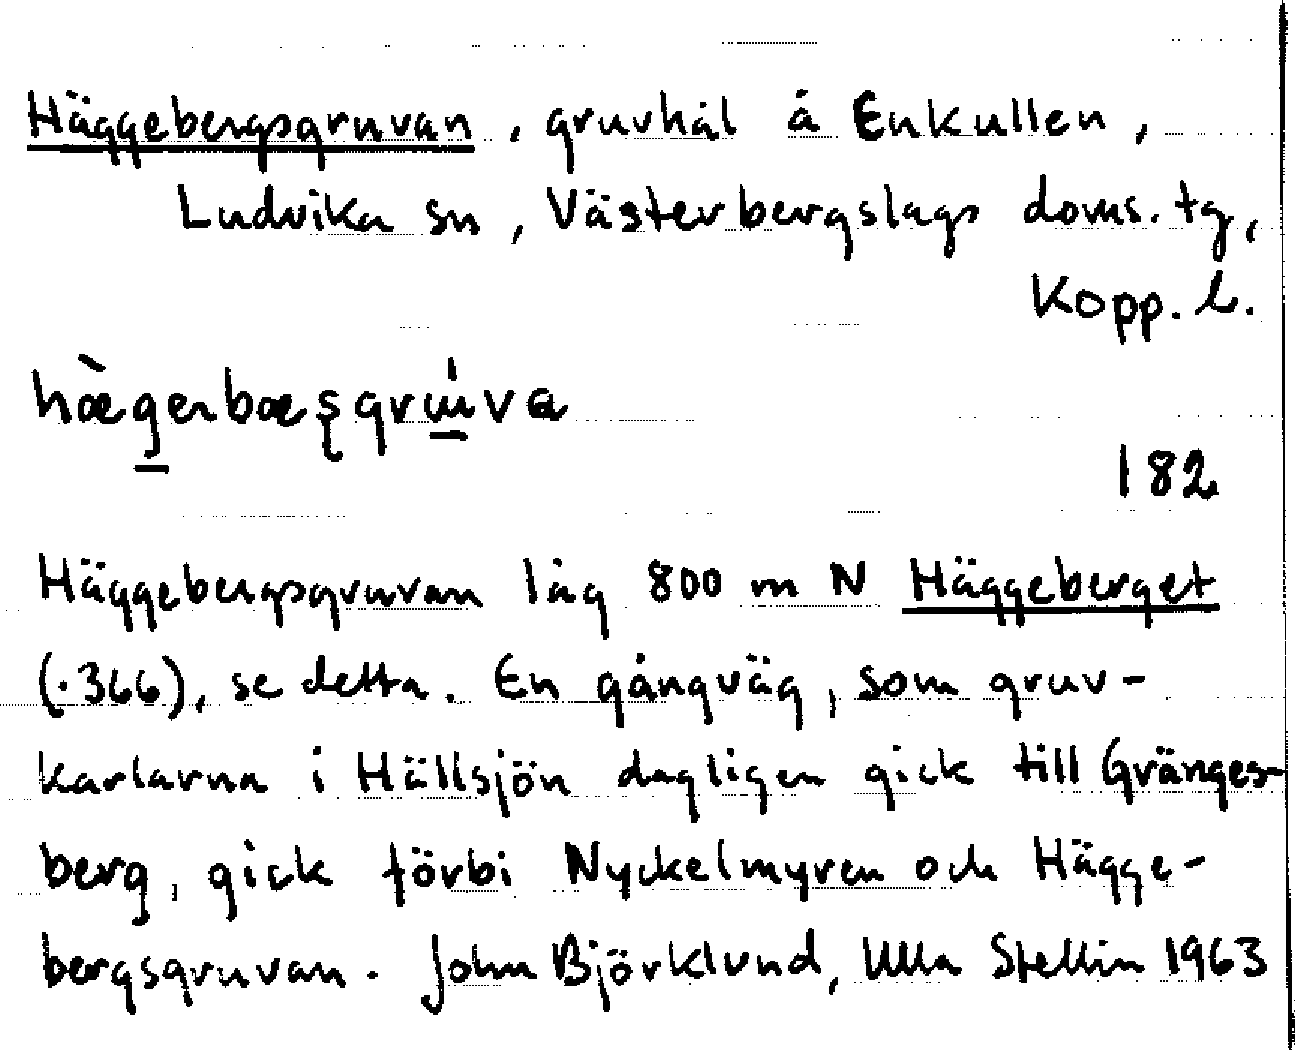 Häggebergsgruvan, gruvhål å Enkullen,
Ludvika sn, Västerbergslags doms. tg,
Kopp. l.
hæ̀g̲erbæşgru̲̍va
182
Häggebergsgruvan låg 800 m N Häggeberget
(.366), se detta. En gångväg, som gruv-
karlarna i Hällsjön dagligen gick till Gränges-
berg, gick förbi Nyckelmyren och Hägge-
bergsgruvan. John Björklund, Ulla Stellin 1963